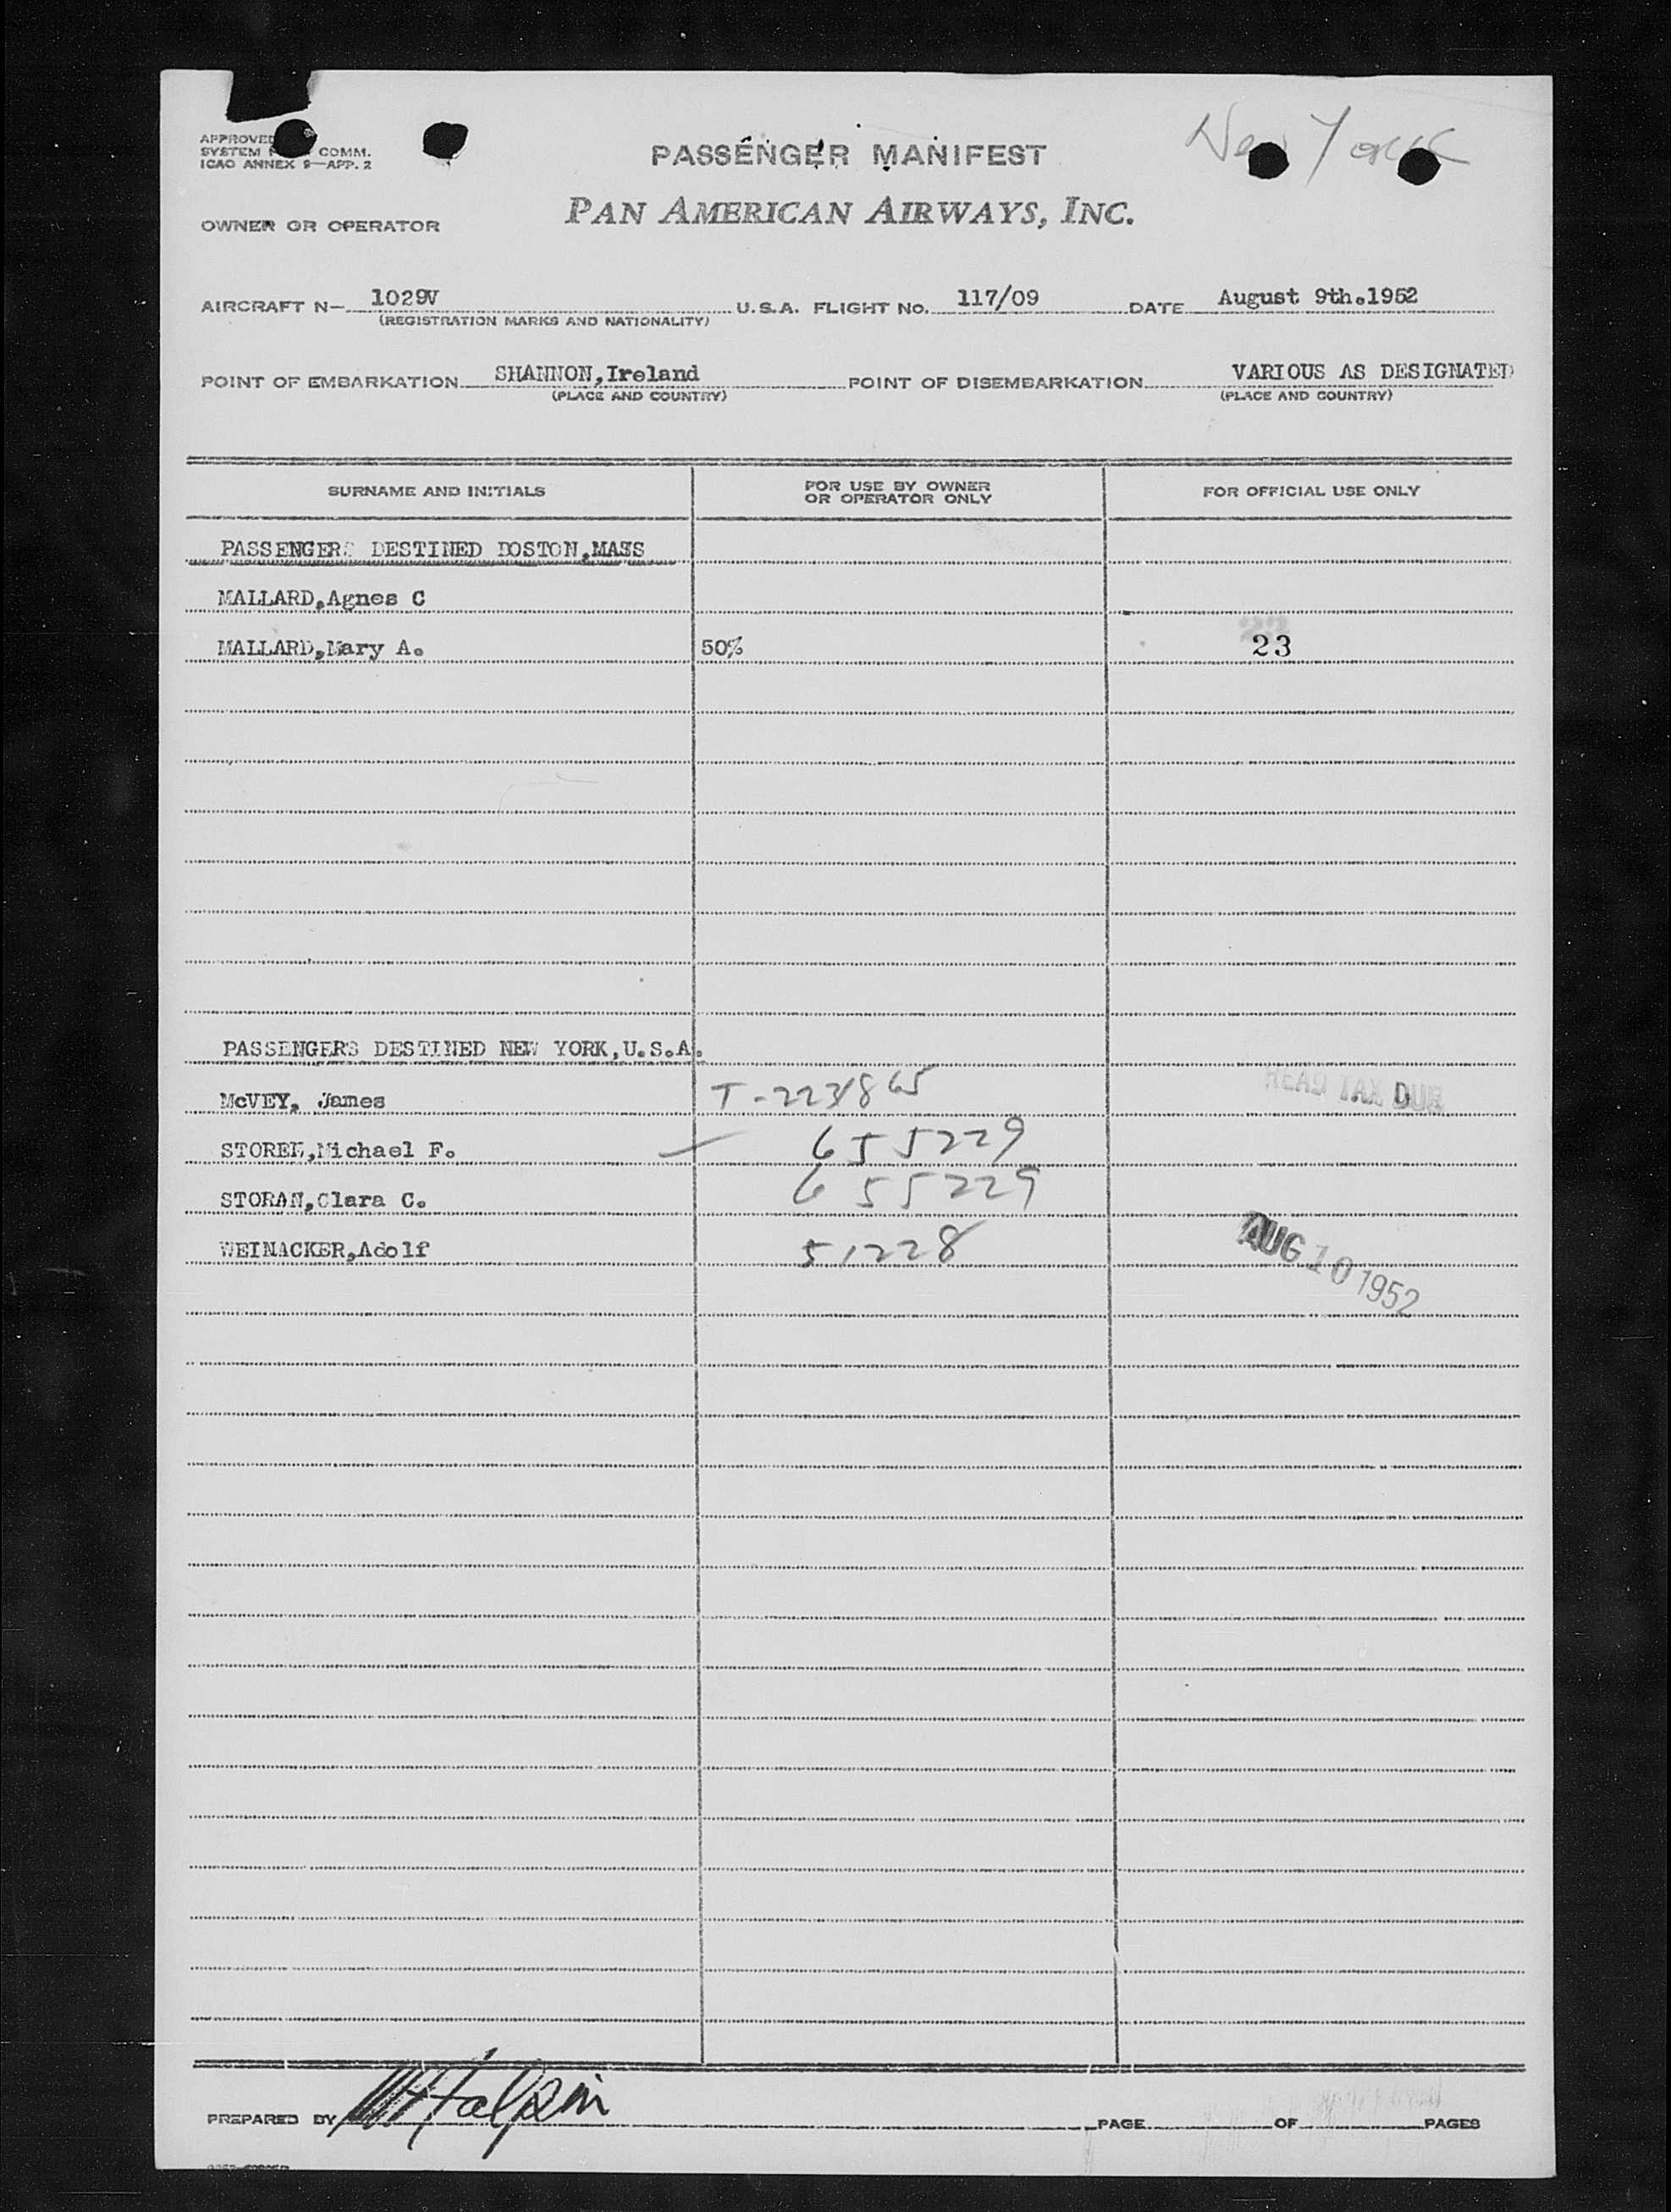 New York
APPROVED
SYSTEM COMM.
ICAO ANNEX 9—APP. 2
PASSENGER MANIFEST
OWNER OR OPERATOR
PAN AMERICAN AIRWAYS, INC.
AIRCRAFT N- 1029V U.S.A. FLIGHT NO. 117/09 DATE August 9th.1952
(REGISTRATION MARKS AND NATIONALITY)
POINT OF EMBARKATION SHANNON,Ireland POINT OF DISEMBARKATION VARIOUS AS DESIGNATED
(PLACE AND COUNTRY) (PLACE AND COUNTRY)
SURNAME AND INITIALS FOR USE BY OWNER OR OPERATOR ONLY FOR OFFICIAL USE ONLY
PASSENGERS DESTINED BOSTON,MASS
MALLARD,Agnes C
MALLARD,Mary A. 50% 23
PASSENGERS DESTINED NEW YORK,U.S.A.
McVEY, James T-2231865 HEAD TAX DUE
Michael F. 655229
STORAN,Clara C. 655229
WEINACKER,Adolf 51228 AUG 10 1952
PREPARED BY Halpin PAGE OF PAGES